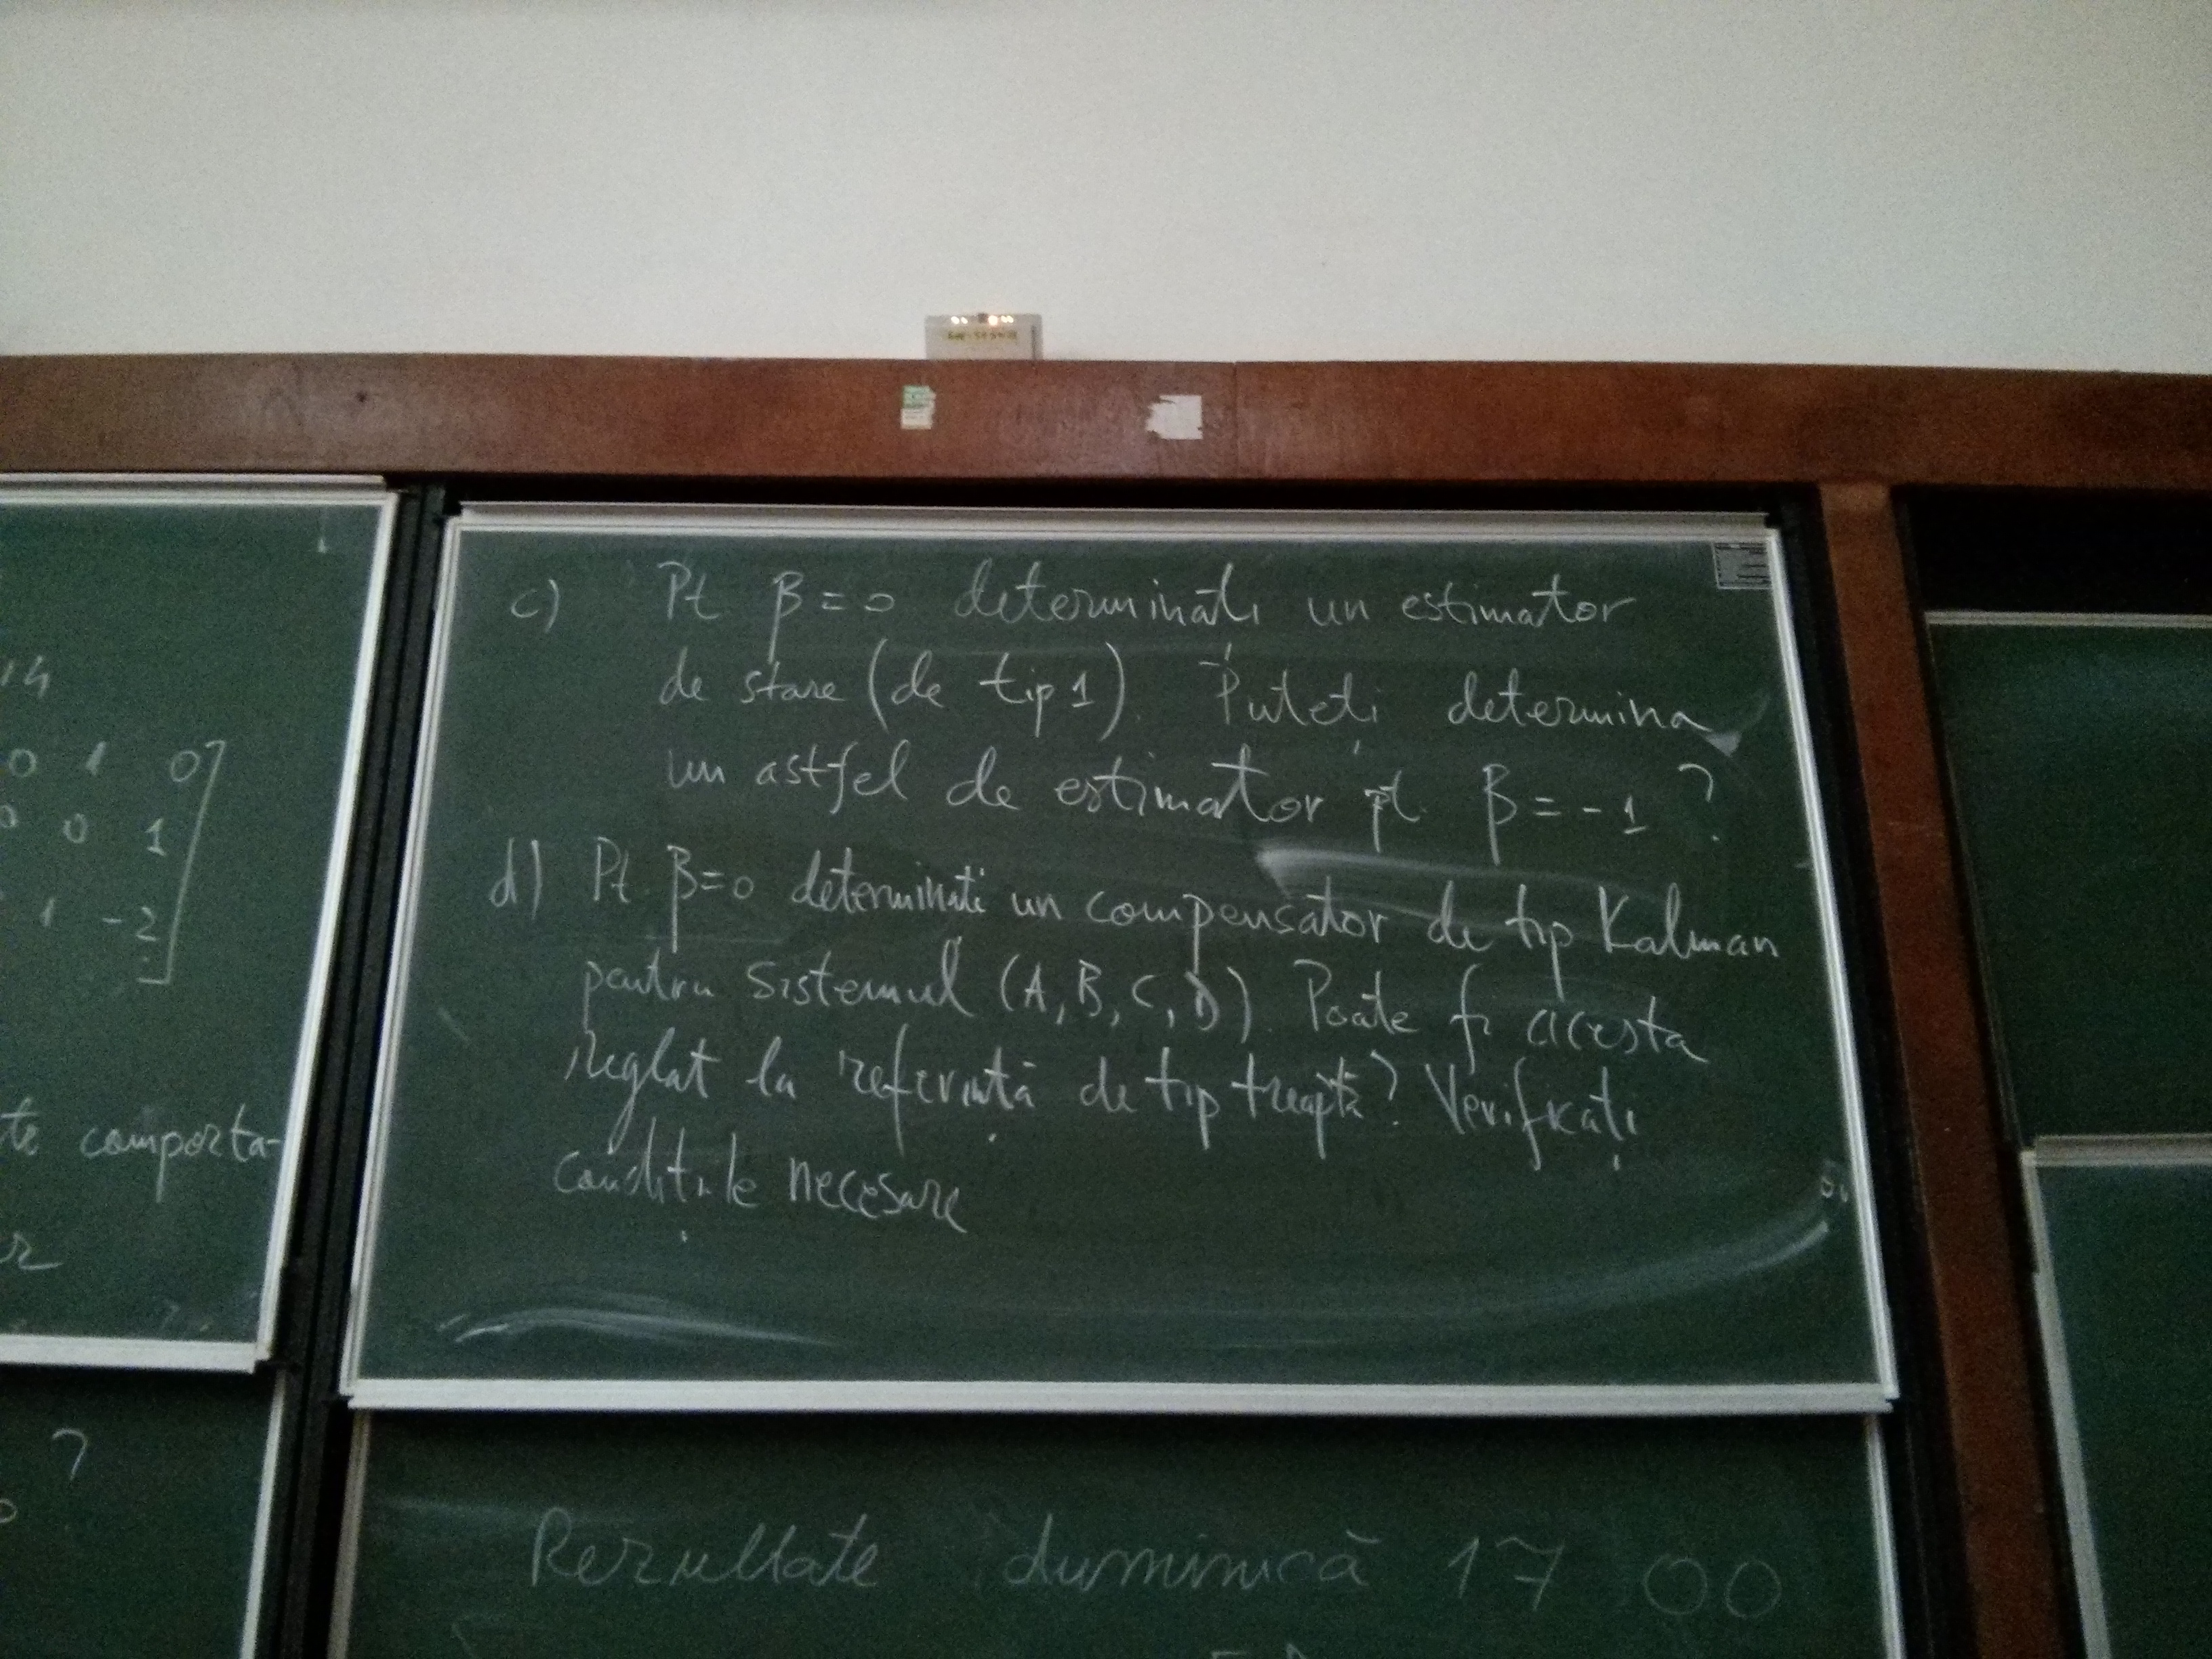 14
0 1 0
0 0 1
1 -2
te comporta-
or
?
c) Pt β=0 determinați un estimator
de stare (de tip 1). Puteți determina
un astfel de estimator pt. β=-1 ?
d) Pt. β=0 determinați un compensator de tip Kalman
pentru sistemul (A, B, C, D). Poate fi acesta
reglat la referință de tip treaptă? Verificați
condițiile necesare
Rezultate duminică 17 00